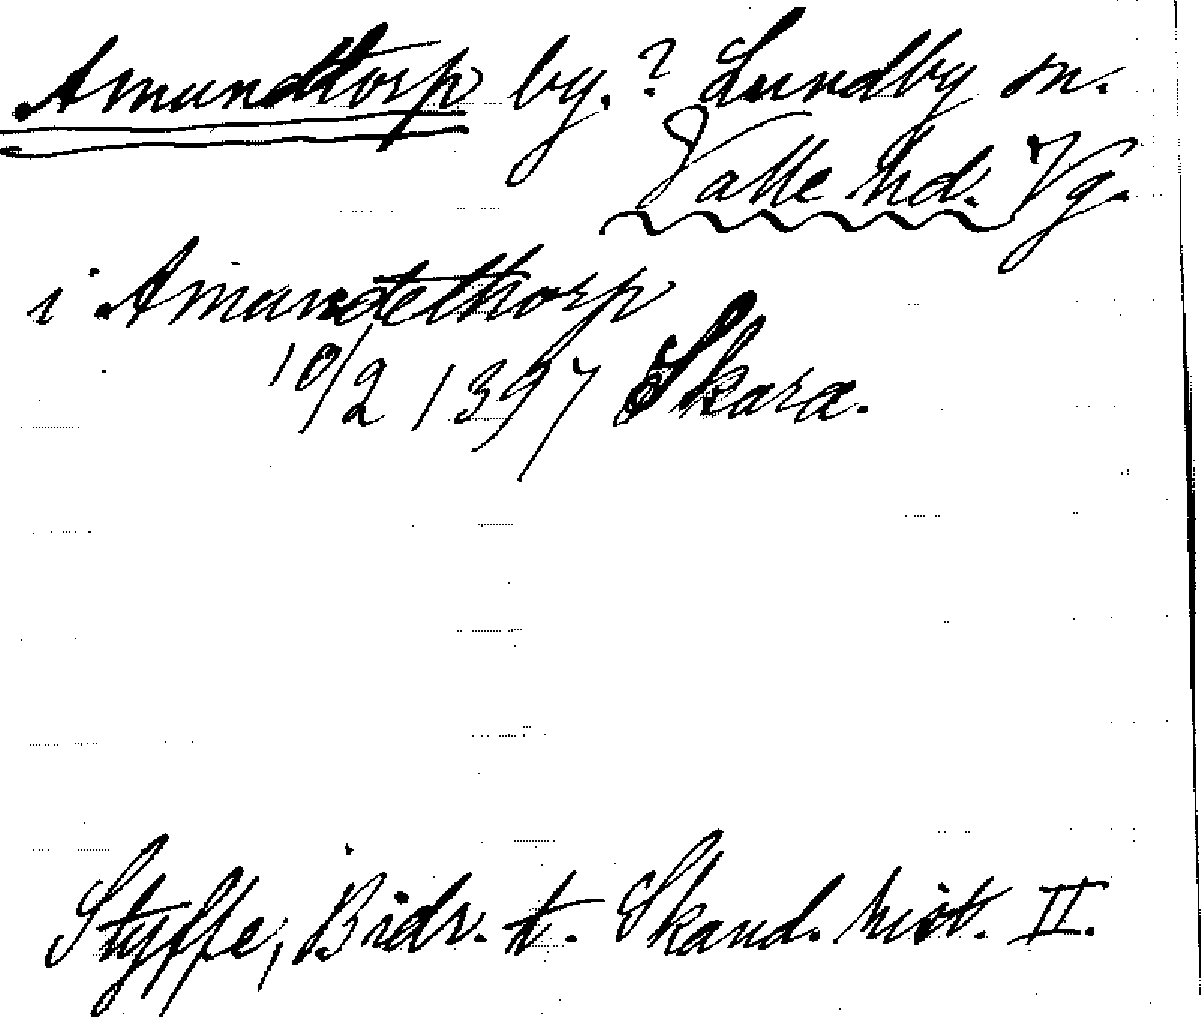 Amundtorp by.? Lundby sn.
Valle hd. Vg.
i Amundethorp
10/2 1397 Skara.
Styffe, Bidr. t. Skand. hist. II.